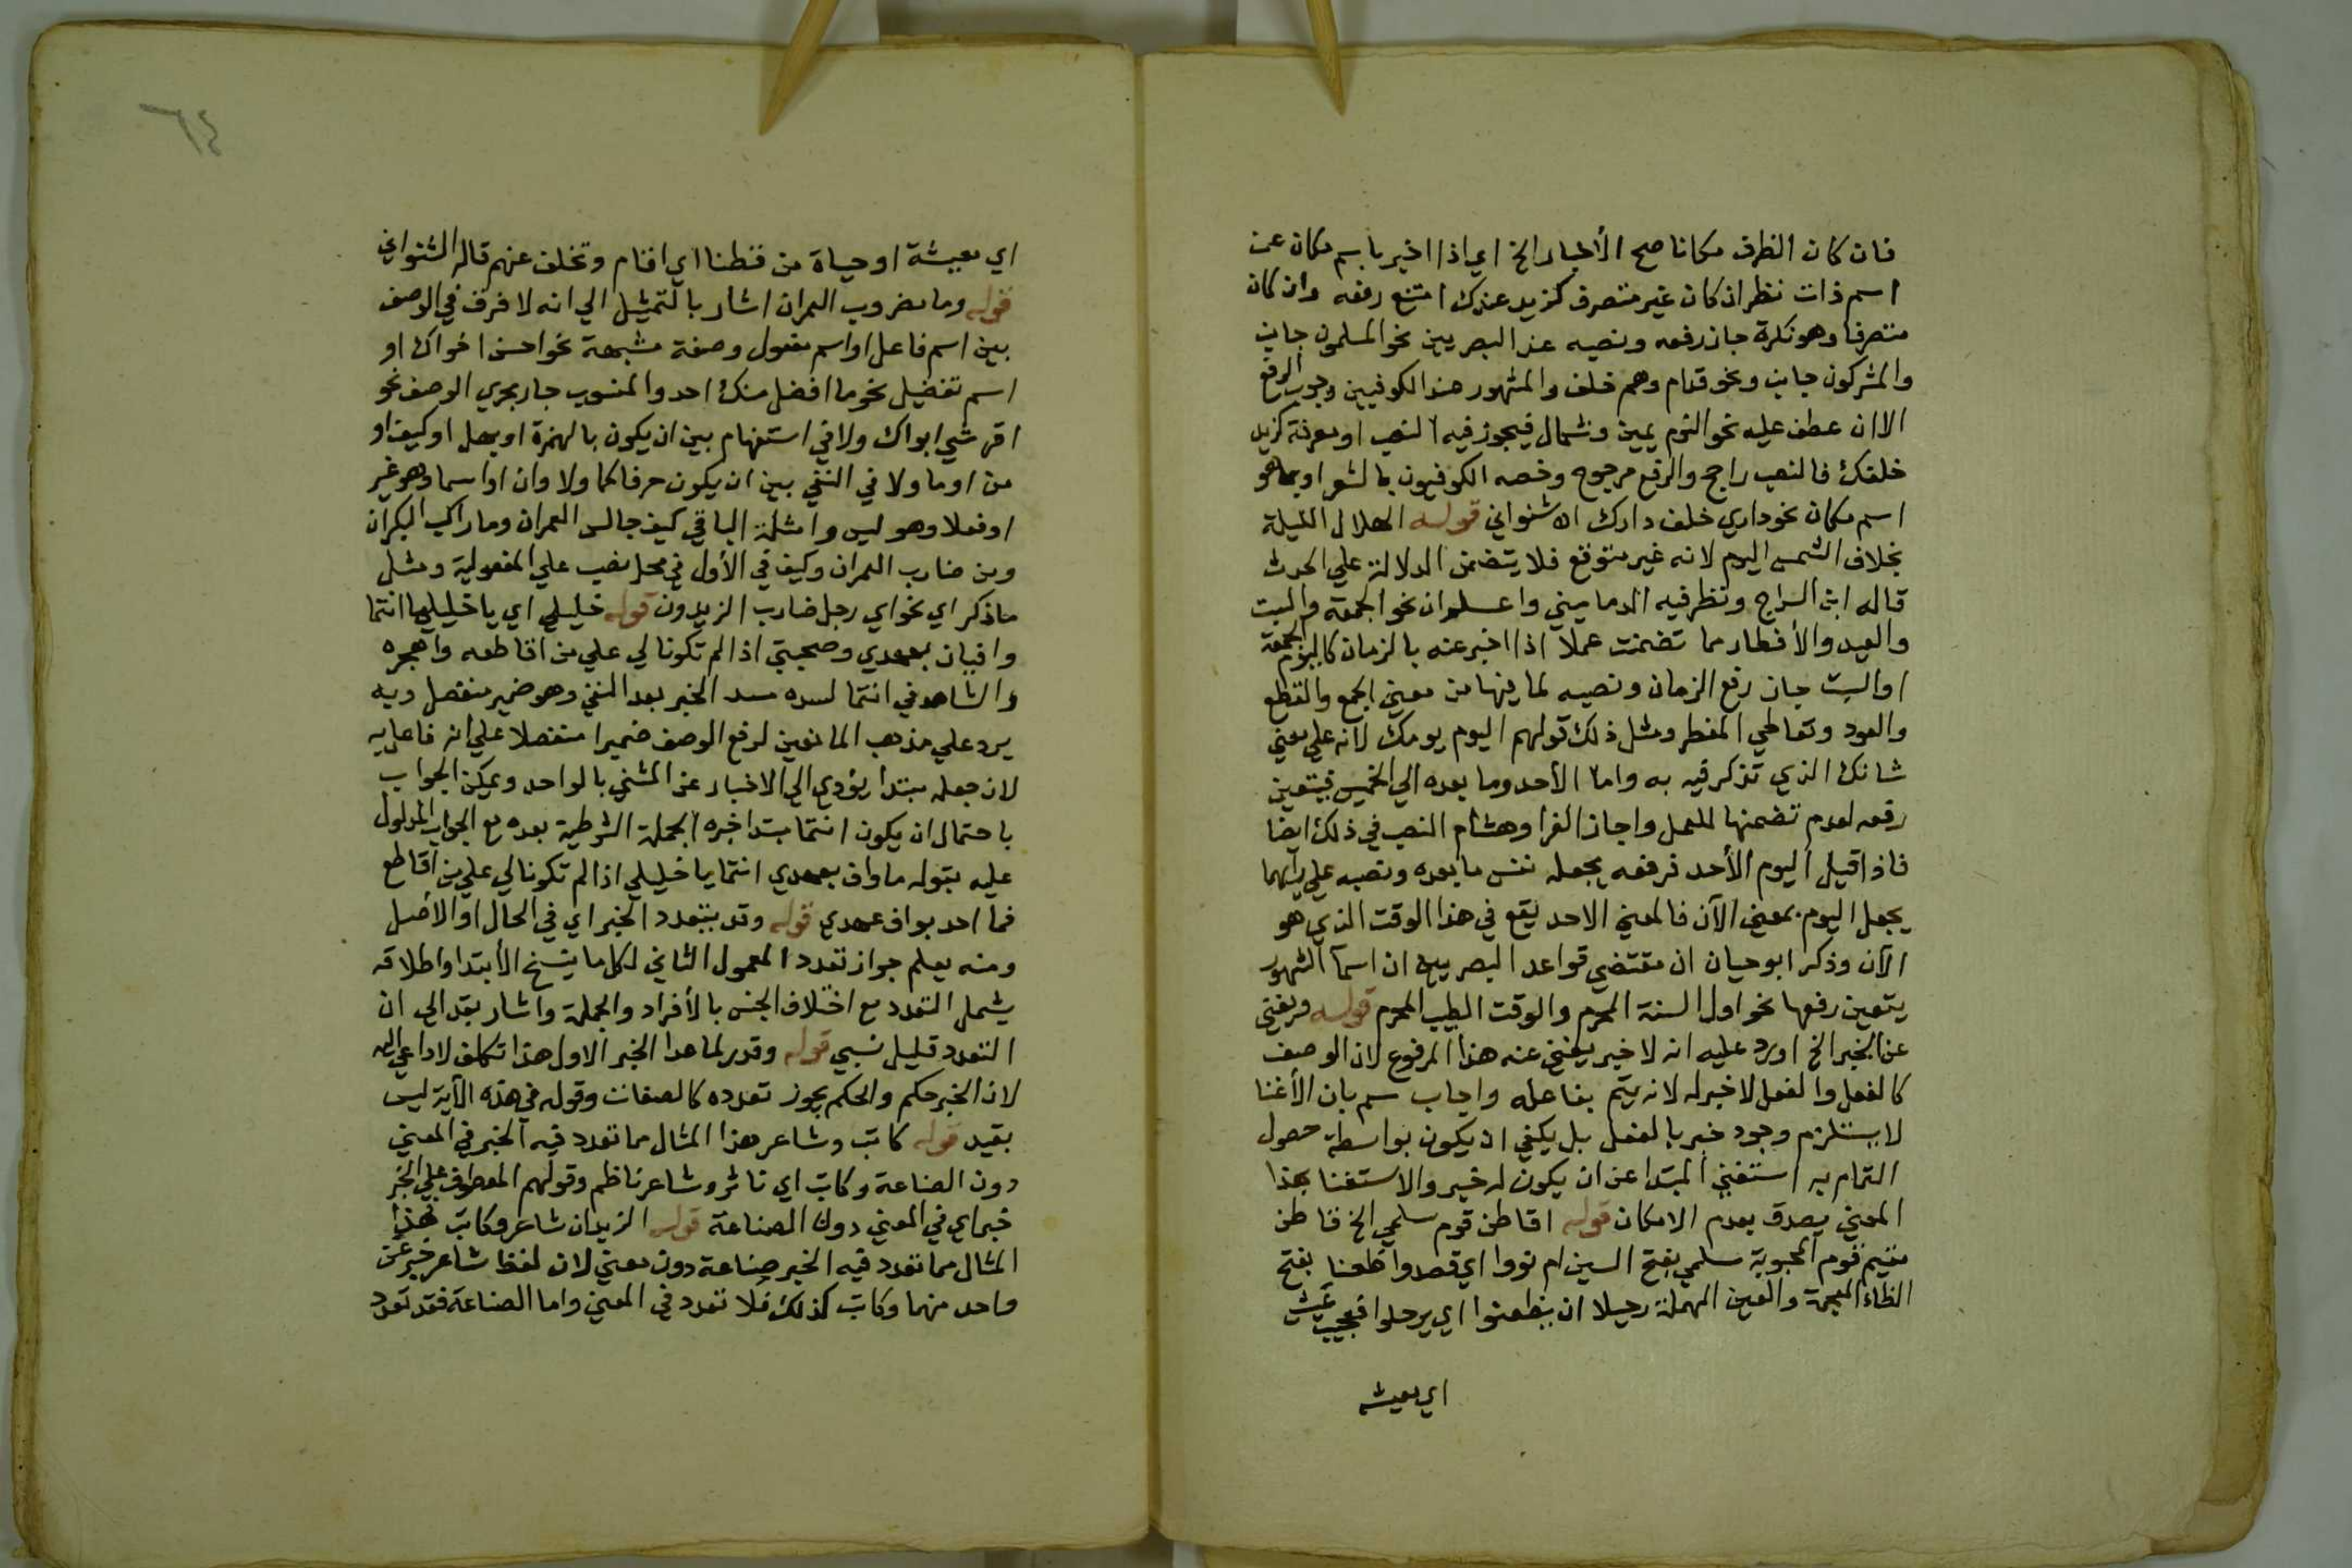 فان كان الظرف مكانا صح الأخبار الخ اي اذا اخبر باسم مكان عن
اسم ذات نظر ان كان غير متصرف كزيد عندك امتنع رفعه وان كان
متصرفا وهو نكرة جاز رفعه ونصبه عند البصريين نحو المسلمون جانب
والمشركون جانب ونحو قدام وهم خلف والمشهور عند الكوفيين وجوب الرفع
الا ان عطف عليه نحو القوم يمين وشمال فيجوز فيه النصب او معرفة كزيد
خلفك فالنصب راجح والرفع مرجوح وخصه الكوفيون بالشعر او بما هو
اسم مكان نحو داري خلف دارك اه شنواني قوله الهلال الليلة
بخلاف الشمس اليوم لانه غير متوقع فلا يتضمن الدلالة علي الحدث
قاله ابن السراج ونظر فيه الدماميني واعلم ان نحو الجمعة والسبت
والعيد والأفطار مما تضمنت عملا اذا اخبر عنه بالزمان كاليوم الجمعة
او السبت جاز رفع الزمان ونصبه لما فيها من معني الجمع والقطع
والعود وتعاطي المفطر ومثل ذلك قولهم اليوم يومك لانه علي معني
شانك الذي تذكر فيه به واما الأحد وما بعده الي الخميس فيتعين
رفعه لعدم تضمنها للعمل واجاز الفرا وهشام النصب في ذلك ايضا
فاذا قيل اليوم الأحد فرفعه يجعله نفس ما بعده ونصبه علي رأيهما
يجعل اليوم بمعني الآن فالمعني الاحد يقع في هذا الوقت الذي هو
الآن وذكر ابو حيان ان مقتضي قواعد البصريين ان اسمآ الشهور
يتعين رفعها نحو اول السنة المحرم والوقت الطيب المحرم قوله ويغني
عن الخبر الخ اورد عليه انه لا خبر يغني عنه هذا المرفوع لان الوصف
كالفعل والفعل لا خبر له لانه يتم بفاعله واجاب سم بان الأغنا
لا يستلزم وجود خبر بالفعل بل يكفي ان يكون بواسطة حصول
التمام به استغني المبتدا عن ان يكون له خبر والاستغنا بهذا
المعني يصدق بعدم الامكان قوله اقاطن قوم سلمي الخ قاطن
مقيم قوم المحبوبة سلمي بفتح السين ام نووا اي قصدوا ظعنا بفتح
الظاء المعجمة والعين المهملة رحيلا ان يظعنوا اي يرحلوا فعجيب عيش
اي معيشة
٦٤
اي معيشة او حياة من قطنا اي اقام وتخلف عنهم قاله الشنواني
قوله وما مضروب العمران اشار بالتمثيل الي انه لا فرق في الوصف
بين اسم فاعل او اسم مفعول وصفة مشبهة نحو احسن اخواك او
اسم تفضيل نحو ما افضل منك احد والمنسوب جار مجري الوصف نحو
اقرشي ابواك ولا في استفهام بين ان يكون بالهمزة او بهل او كيف او
من او ما ولا في النفي بين ان يكون حرفا كما ولا وان او اسما وهو غير
او فعلا وهو ليس وامثلة الباقي كيف جالس العمران وما راكب البكران
ومن ضارب العمران وكيف في الأول في محل نصب علي المفعولية ومثل
ما ذكر اي نحو اي رجل ضارب الزيدون قوله خليلي اي يا خليلي ما انتما
وافيان بعهدي وصحبتي اذا لم تكونا لي علي من اقاطعه واهجره
والشاهد في انتما لسده مسد الخبر بعد النفي وهو ضمير منفصل وبه
يرد علي مذهب المانعين لرفع الوصف ضميرا منفصلا علي انه فاعل به
لان جعله مبتدا يؤدي الي الاخبار عن المثني بالواحد ويمكن الجواب
باحتمال ان يكون انتما مبتدا خبره الجملة الشرطية بعده مع الجواب المدلول
عليه بقوله ما واف بعهدي انتما يا خليلي اذا لم تكونا لي علي من اقاطع
فما احد بواف عهدي قوله وقد يتعدد الخبر اي في الحال او الأصل
ومنه يعلم جواز تعدد المعمول الثاني لكل ما ينسخ الأبتدا واطلاقه
يشمل التعدد مع اختلاف الجنس بالأفراد والجملة واشار بقد الي ان
التعدد قليل نسبي قوله وقدر لما عدا الخبر الاول هذا تكلف لا داعي اليه
لان الخبر حكم والحكم يجوز تعدده كالصفات وقوله في هذه الآية ليس
بقيد قوله كاتب وشاعر هذا المثال مما تعدد فيه الخبر في المعني
دون الصناعة وكاتب اي ناثر وشاعر ناظم وقولهم المعطوف علي الخبر
خبر اي في المعني دون الصناعة قوله الزيدان شاعر وكاتب هذا
المثال مما تعدد فيه الخبر صناعة دون معني لان لفظ شاعر خبر عن
واحد منهما وكاتب كذلك فلا تعدد في المعني واما الصناعة فقد تعدد